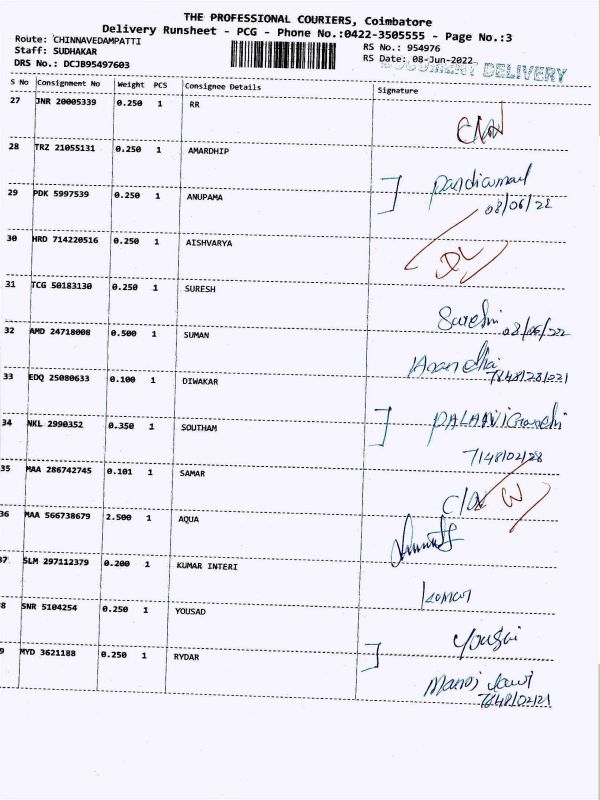 THE PROFESSIONAL COURIERS, Coimbatore
Delivery Runsheet - PCG - Phone No.:0422-3505555 - Page No.:3
Route: CHINNAVEDAMPATTI
RS No.: 954976
Staff: SUDHAKAR
RS Date: 08-Jun-2022
DRS No.: DCJB95497603
DOCUMENT DELIVERY
S No Consignment No Weight PCS Consignee Details Signature
27 JNR 20005339 0.250 1 RR
28 TRZ 21055131 0.250 1 AMARDHIP
29 PDK 5997539 0.250 1 ANUPAMA
08/06/22
30 HRD 714220516 0.250 1 AISHVARYA
31 TCG 50183130 0.250 1 SURESH
Sureshi 08/06/22
32 AMD 24718008 0.500 1 SUMAN
33 EDQ 25080633 0.100 1 DIWAKAR
34 NKL 2990352 0.350 1 SOUTHAM
7148/02/28
35 MAA 286742745 0.101 1 SAMAR
36 MAA 566738679 2.500 1 AQUA
37 SLM 297112379 0.200 1 KUMAR INTERI
kumar
8 SNR 5104254 0.250 1 YOUSAD
9 MYD 3621188 0.250 1 RYDAR
Manoj
7148/02/21